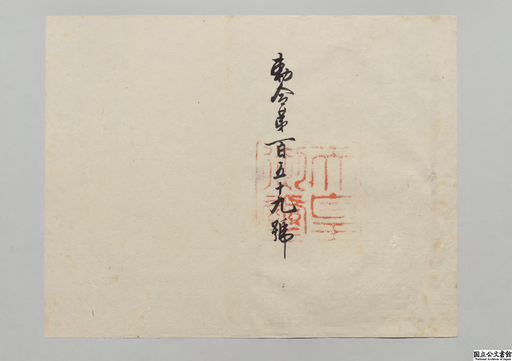 勅令第百五十九號
国立公文書館
National Archives of Japan